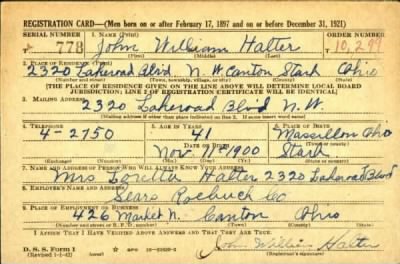 REGISTRATION CARD—(Men born on or after February 17, 1897 and on or before December 31, 1921)
SERIAL NUMBER 1. NAME (Print) ORDER NUMBER
T 778 John William Halter 10,299
(First) (Middle) (Last)
2. PLACE OF RESIDENCE (Print)
2320 Lakeroad Blvd N.W. Canton Stark Ohio
(Number and street) (Town, township, village, or city) (County) (State)
[THE PLACE OF RESIDENCE GIVEN ON THE LINE ABOVE WILL DETERMINE LOCAL BOARD
JURISDICTION; LINE 2 OF REGISTRATION CERTIFICATE WILL BE IDENTICAL]
3. MAILING ADDRESS
2320 Lakeroad Blvd N.W.
(Mailing address if other than place indicated on line 2. If same insert word same)
4. TELEPHONE 5. AGE IN YEARS 6. PLACE OF BIRTH
4-2750 41 Massillon Ohio
DATE OF BIRTH (Town or county)
Nov 11 1900 Stark
(Exchange) (Number) (Mo.) (Day) (Yr.) (State or country)
7. NAME AND ADDRESS OF PERSON WHO WILL ALWAYS KNOW YOUR ADDRESS
Mrs Loretta Halter 2320 Lakeroad Blvd
8. EMPLOYER'S NAME AND ADDRESS
Sears Roebuck Co
9. PLACE OF EMPLOYMENT OR BUSINESS
426 Market N. Canton Ohio
(Number and street or R. F. D. number) (Town) (County) (State)
I AFFIRM THAT I HAVE VERIFIED ABOVE ANSWERS AND THAT THEY ARE TRUE.
D. S. S. Form 1
(Revised 1-1-42) John William Halter
(Registrant's signature)